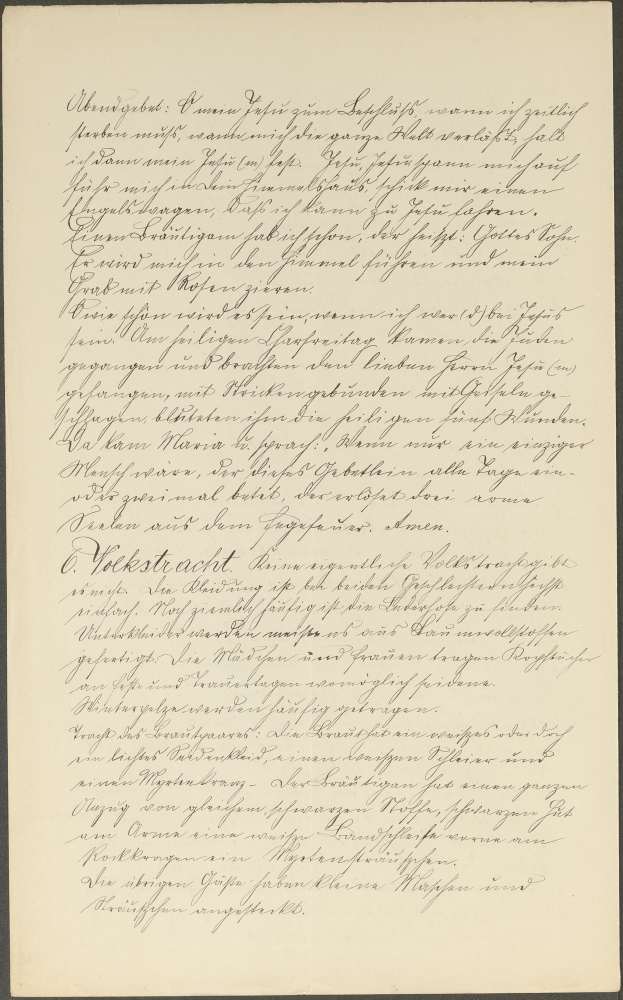 Abendgebet: O mein Jesu zum Beschluß, wann ich zeitlich
sterben muß, wann mich die ganze Welt verläßt, halt
ich dann mein Jesu (m) fest. Jesu, Jesu spann mich auf
führ mich in dein Himmelshaus, schick mir einen
Engelswagen, daß ich kann zu Jesu fahren.
Einen Bräutigam hab ich schon, der heißt: Gottes Sohn.
Er wird mich in den Himmel führen und mein
Grab mit Rosen zieren.
O wie schön wird es sein, wenn ich wer(d) bei Jesus
sein. Am heiligen Charfreitag kamen die Juden
gegangen und brachten den lieben Herrn Jesu (m)
gefangen, mit Stricken gebunden mit Geiseln ge-
schlagen, bluteten ihm die heiligen fünf Wunden.
Da kam Maria u. sprach: „Wenn nur ein einziger
Mensch wäre, der dieses Gebetlein alle Tage ein-
oder zweimal betet, der erlöset drei arme
Seelen aus dem Fegefeuer. Amen.
6. Volkstracht. Keine eigentliche Volkstracht gibt
es nicht. Die Kleidung ist bei beiden Geschlechtern höchst
einfach. Noch ziemlich häufig ist die Lederhose zu finden.
Unterkleider werden meistens aus Baumwollstoffen
gefertigt. Die Mädchen und Frauen tragen Kopftücher
an Fest- und Trauertagen womöglich seidene.
Winterpelze werden häufig getragen.
Tracht des Brautpaares: Die Braut hat ein weißes oder doch
ein lichtes Seidenkleid, einen weißen Schleier und
einen Myrtenkranz – Der Bräutigam hat einen ganzen
Anzug von gleichem schwarzen Stoffe, schwarzen Hut
am Arme eine weiße Bandschleife vorne am
Rockkragen ein Myrtensträußchen.
Die übrigen Gäste haben kleine Maschen und
Sträußchen angesteckt.